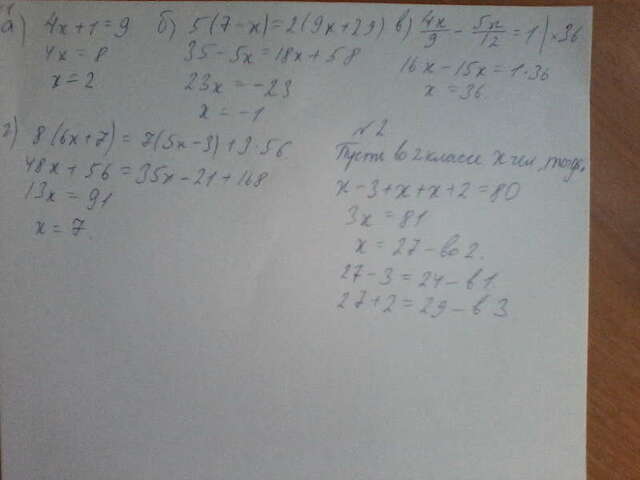 1
а) 4x+1=9
4x=8
x=2
б) 5(7-x)=2(9x+29)
35-5x=18x+58
23x=-23
x=-1
в) 4x/9 - 5x/12 = 1 | ×36
16x-15x=1·36
x=36.
г) 8(6x+7)=7(5x-3)+3·56
48x+56=35x-21+168
13x=91
x=7.
№2
Пусть во 2 классе x чел, тогда
x-3+x+x+2=80
3x=81
x=27-во 2.
27-3=24-в 1.
27+2=29-в 3